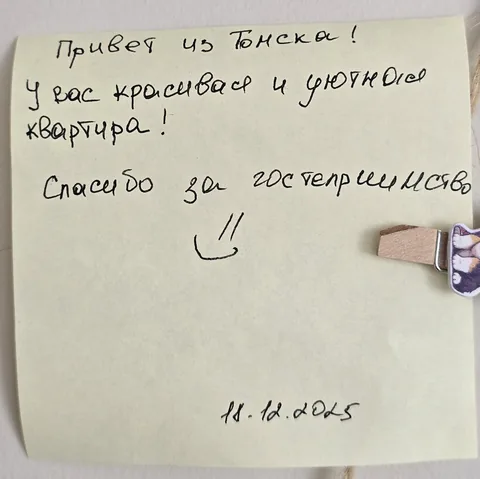 Привет из Томска!
У вас красивая и уютная
квартира!
Спасибо за гостеприимство
11.12.2025